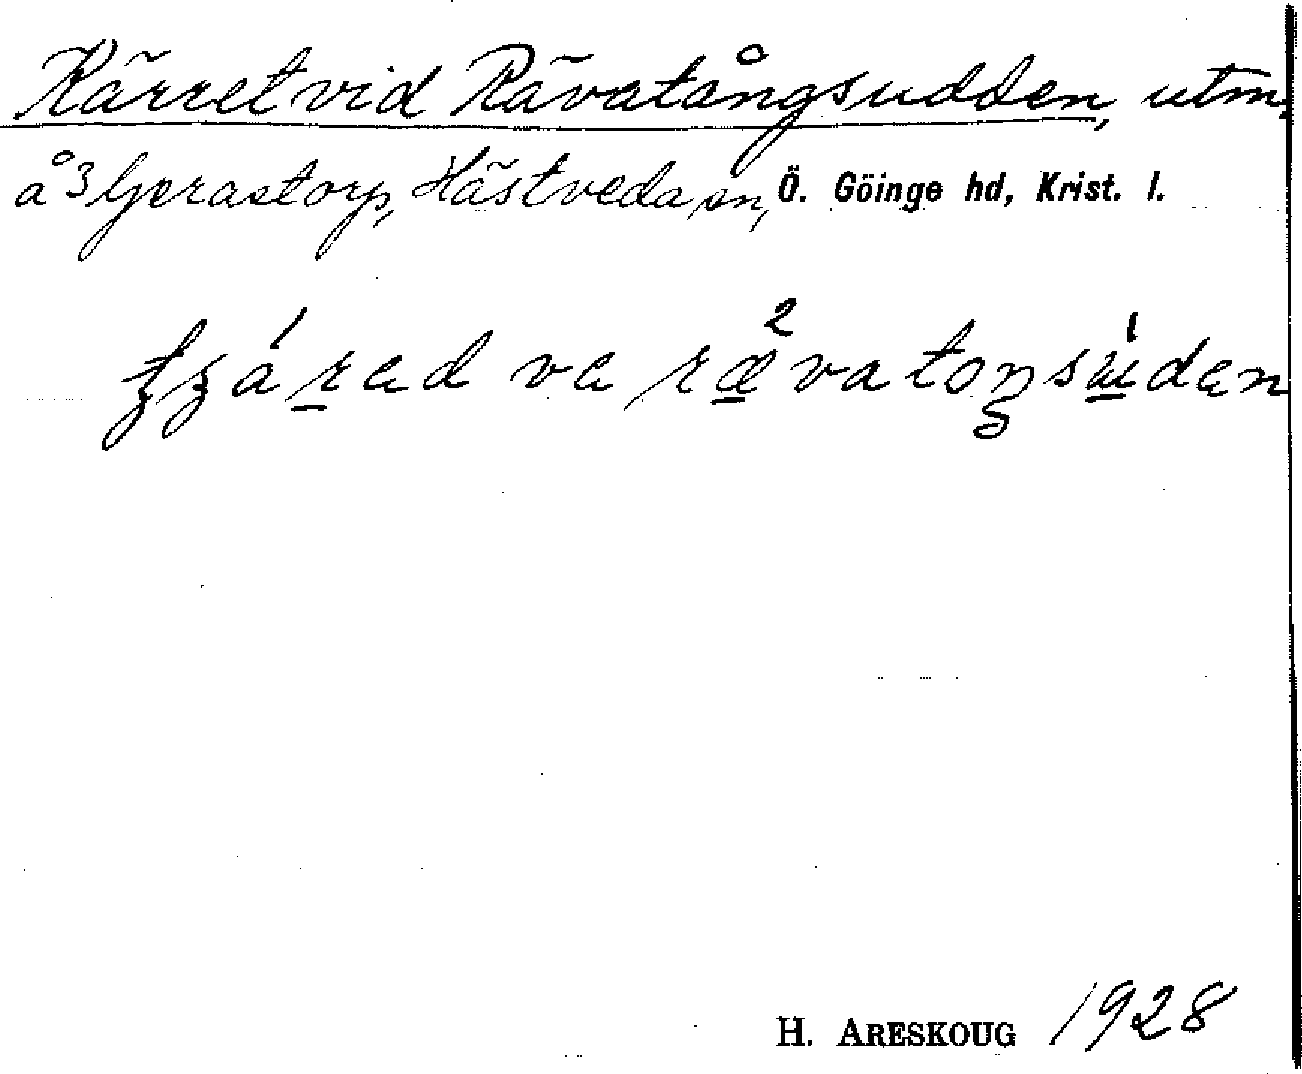 Kärret vid Rävatångsudden, utm.
å 3 Gerastorp, Hästveda sn, Ö. Göinge hd, Krist. l.
va
H. ARESKOUG 1928